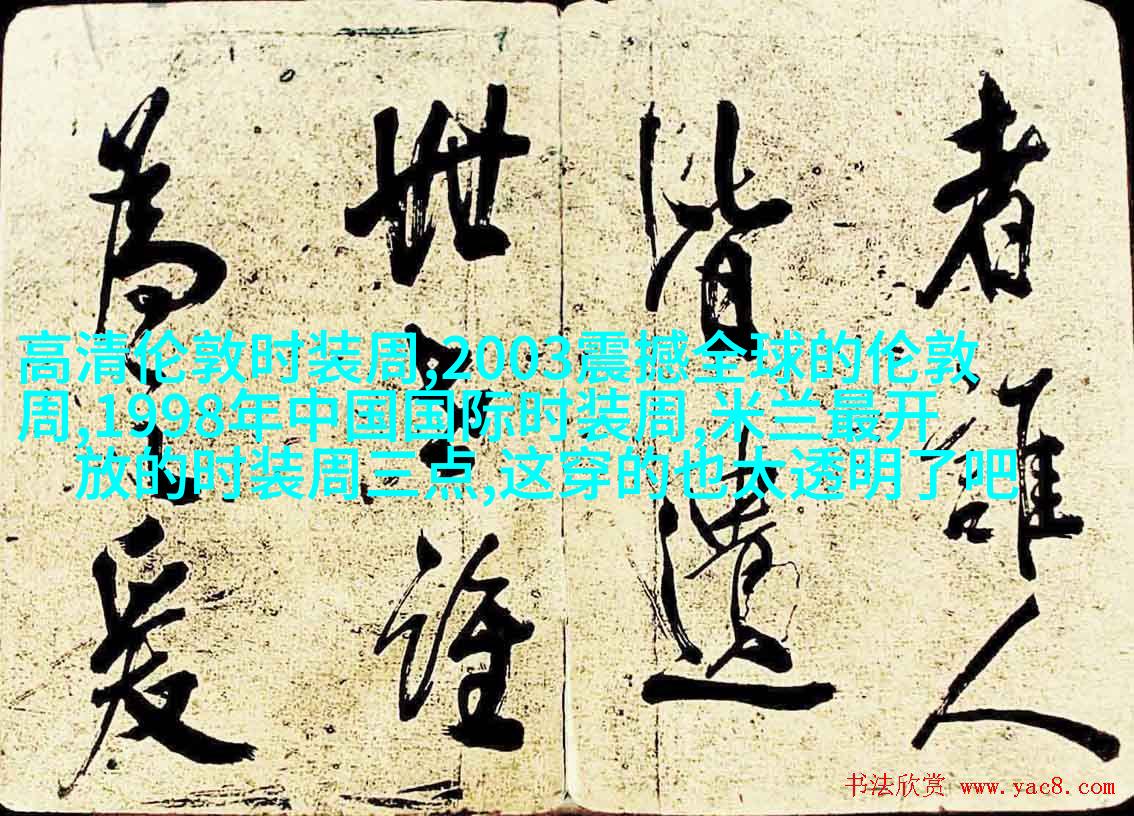 者誰人
皆遺
世上誰
為
高清伦敦时装周,2003震撼全球的伦敦
周,1998年中国国际时装周,米兰最开
放的时装周三点,这穿的也太透明了吧
书法欣赏 www.yac8.com